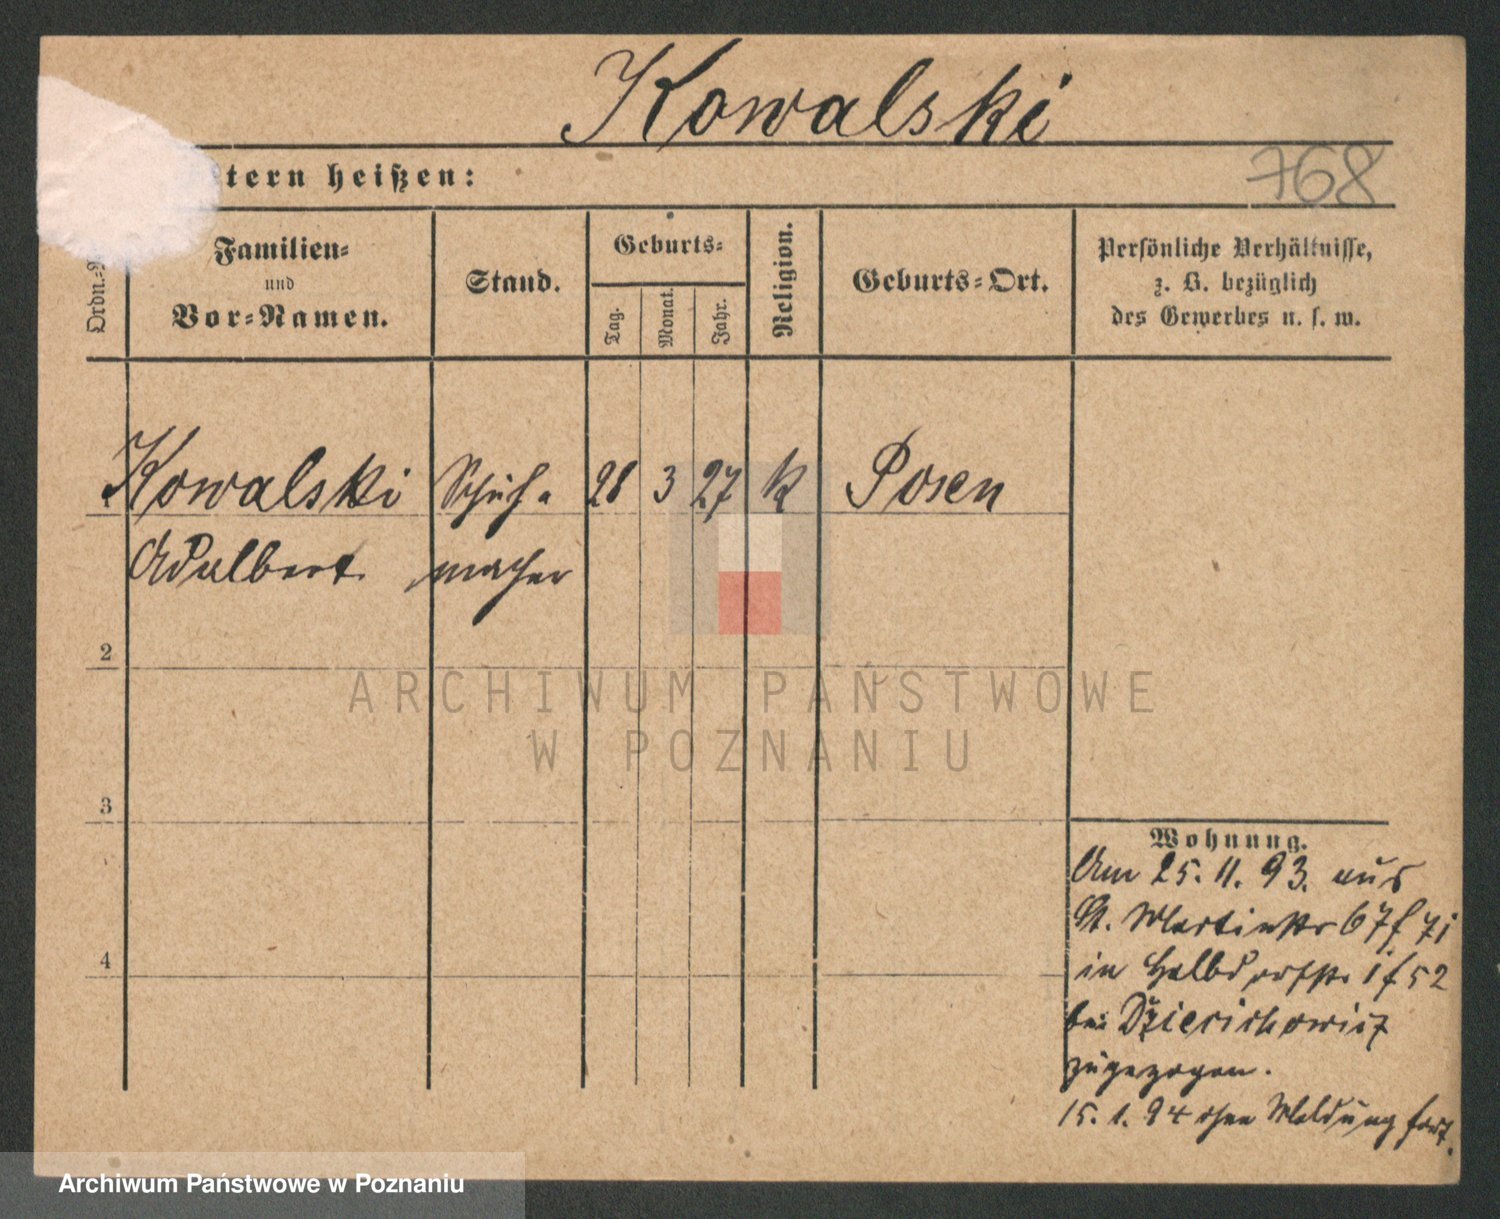 Kowalski
tern heißen:
768
Ordn.
Familien-
und
Vor-Namen.
Stand.
Geburts-
Tag.
Monat.
Jahr.
Religion.
Geburts-Ort.
Persönliche Verhältnisse,
z. B. bezüglich
des Gewerbes u. s. w.
Kowalski Schuh- 28 3 27 k Posen
Adalbert macher
2
3
4
ARCHIWUM PAŃSTWOWE
W POZNANIU
Wohnung.
Am 25. 11. 93. aus
St. Martinstr 67
in Halbdorfstr.
bei
zugezogen.
15. 1. 94 ohne Meldung fort.
Archiwum Państwowe w Poznaniu